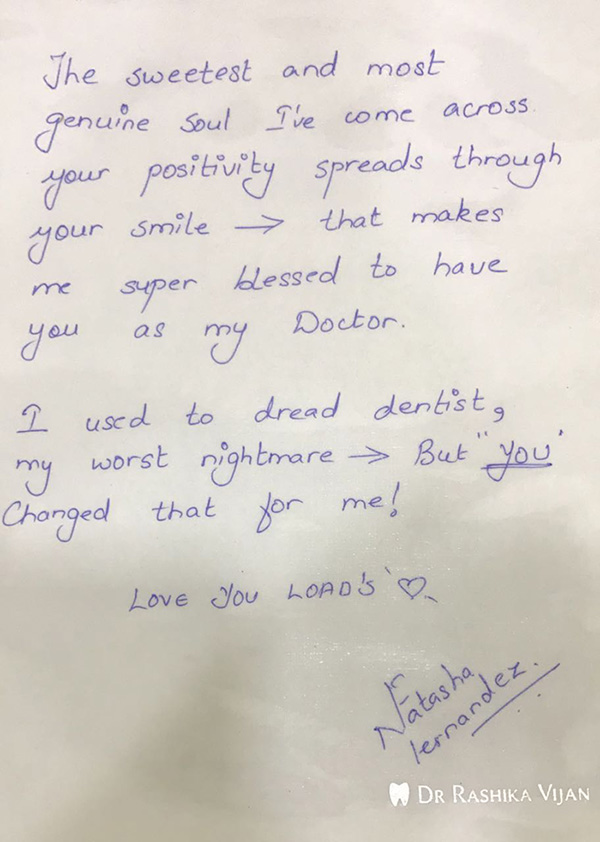 The sweetest and most
genuine soul I've come across
your positivity spreads through
your smile → that makes
me super blessed to have
you as my Doctor.
I used to dread dentist,
my worst nightmare → But "you'
Changed that for me!
LOVE YOU LOAD'S ♡
Natasha
Fernandez.
DR RASHIKA VIJAN